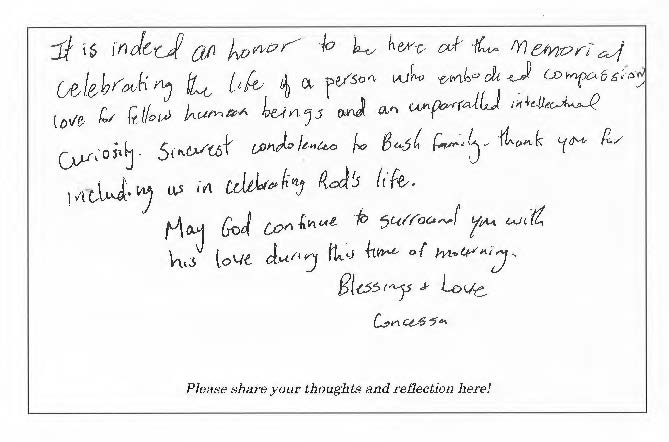 It is indeed an honor to be here at this Memorial
celebrating the life of a person who embodied compassion,
love for fellow human beings and an unparralled intellectual
curiosity. Sincerest condolences to Bush family. Thank you for
including us in celebrating Rod's life.
May God continue to surround you with
his love during this time of mourning.
Blessings & Love
Concessa
Please share your thoughts and reflection here!